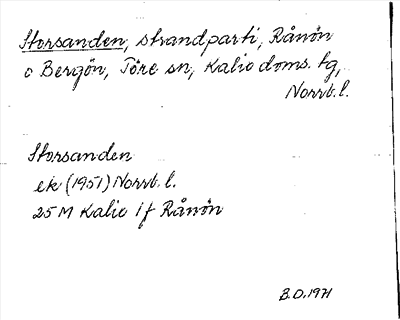 Storsanden, strandparti, Rånön
o Bergön, Töre sn, Kalix doms. tg,
Norrb.l.
Storsanden
ek (1951) Norrb.l.
25M Kalix 1f Rånön
B.O.1971